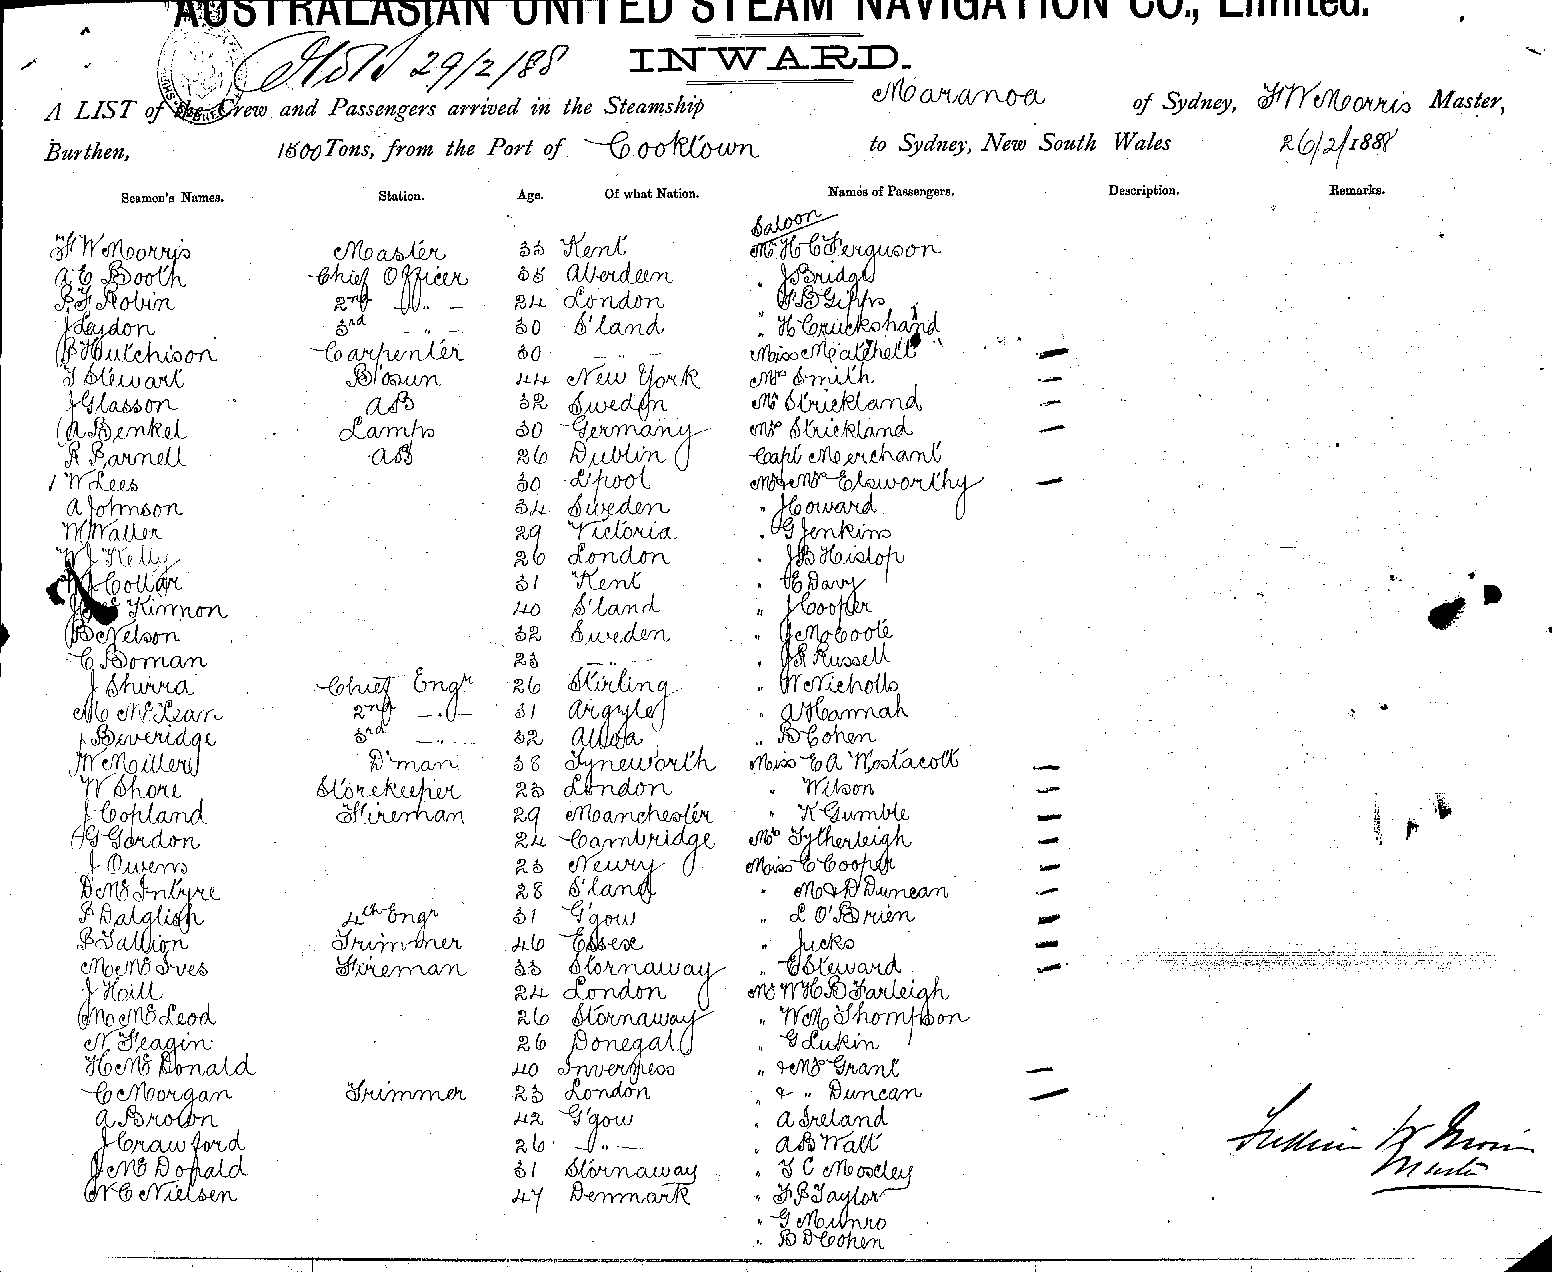 AUSTRALASIAN UNITED STEAM NAVIGATION CO., Limited.
29/2/88 INWARD.
A LIST of the Crew and Passengers arrived in the Steamship Maranoa of Sydney, F W Morris Master,
Burthen, 1500 Tons, from the Port of Cooktown to Sydney, New South Wales 26/2/1888
Seamen's Names. Station. Age. Of what Nation. Names of Passengers. Description. Remarks.
Saloon
F W Morris Master 33 Kent Mr H C Ferguson
A E Booth Chief Officer 35 Aberdeen " J Bridge
P F Robin 2nd " 24 London " F B Gipps
J Leydon 3rd " 30 S'land " H Cruckshand
P Hutchison Carpenter 30 " Miss Matchett —
T Stewart Bosun 44 New York Mrs Smith —
J Glasson AB 32 Sweden Mr Strickland —
A Benkel Lamps 30 Germany Mrs Strickland —
R Parnell AB 26 Dublin Capt Merchant
W Lees 30 L'pool Mr & Mrs Elsworthy —
A Johnson 34 Sweden " Howard
W Waller 29 Victoria " G Jenkins
W J Kelly 26 London " J B Hislop
J Collar 31 Kent " E Davy
Kinnon 40 S'land " J Cooper
B Nelson 32 Sweden " McCoole
C Boman 23 " " J R Russell
J Shirra Chief Engr 26 Stirling " W Nicholls
M McLean 2nd " 31 Argyle " A Hannah
J Beveridge 3rd " 32 Alloa " B Cohen
W Miller D'man 38 Tyneworth Miss E A Westacott —
W Shore Storekeeper 23 London " Wilson —
J Copland Fireman 29 Manchester " K Gumble —
G Gordon 24 Cambridge Mrs Tytherleigh —
J Owens 23 Newry Miss C Cooper —
D McIntyre 28 S'land " M & D Duncan —
P Dalglish 4th Engr 31 G'gow " L O'Brien —
B Tallion Trimmer 46 Essex " Jucks —
M McIves Fireman 33 Stornaway " E Steward —
J Hill 24 London Mr W H B Farleigh
M McLeod 26 Stornaway " W M Thompson
N Feagin 26 Donegal " G Lukin
H McDonald 40 Inverness " & Mrs Grant —
C Morgan Trimmer 23 London " & " Duncan —
A Brown 42 G'gow " A Ireland
J Crawford 26 " " A B Watt
J McDonald 31 Stornaway " T C Moseley
N C Nielsen 47 Denmark " F P Taylor
" G Munro
" B D Cohen
W Morris
Master